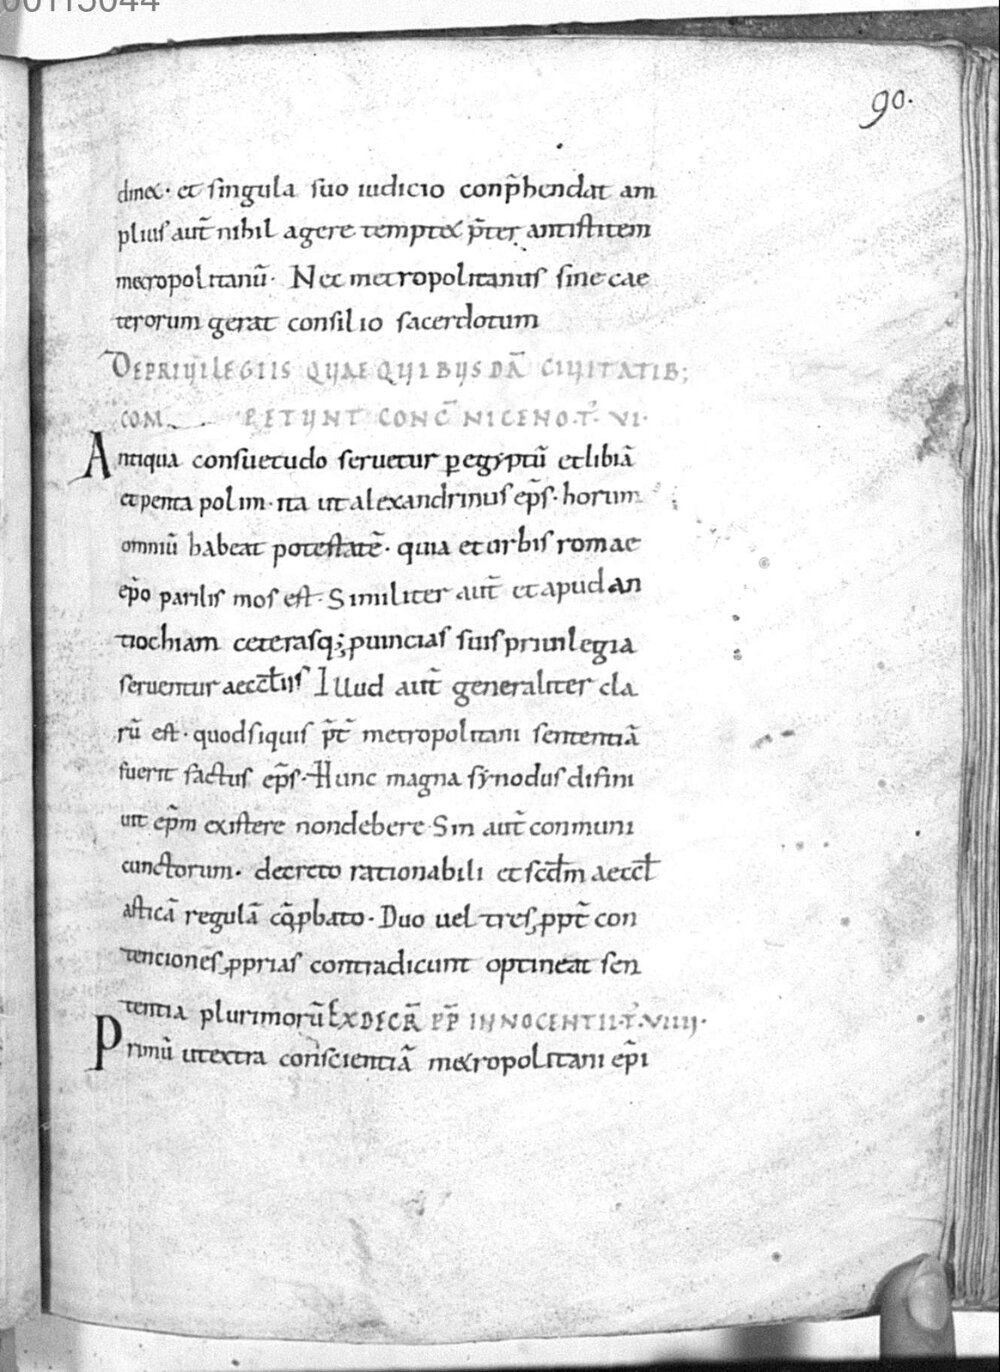 00115044
90.
dinet · et singula suo iudicio conp̄hendat am
plius aut̄ nihil agere temptet p̄ter antistitem
metropolitanū · Nec metropolitanus sine cae
terorum gerat consilio sacerdotum
DEPRIUILEGIIS QUAE QUIBUSDĀ CIUITATIB;
COM PETUNT CONC̄ NICENO·T̄· VI·
Antiqua consuetudo seruetur p egyptū et libiā
et penta polim · ita ut alexandrinus ep̄s · horum
omniū habeat potestatē · quia et urbis romae
ep̄o parilis mos est · Similiter aut̄ et apud an
tiochiam ceterasq; puincias suis priuilegia
seruentur aeccl̄iis Illud aut̄ generaliter cla
rū est · quod siquis p̄t̄ metropolitani sententiā
fuerit factus ep̄s · Hunc magna synodus difini
uit ep̄m existere non debere · Sin aut̄ conmuni
cunctorum · decreto rationabili et scd̄m aeccl̄
asticā regulā cōpbato · Duo uel tres ppt̄ con
tenciones pprias contradicunt optineat sen
tentia plurimorū EX DECR̄ PP̄ INNOCENTII·T̄·VIIII·
Primū ut extra conscientiā metropolitani ep̄i